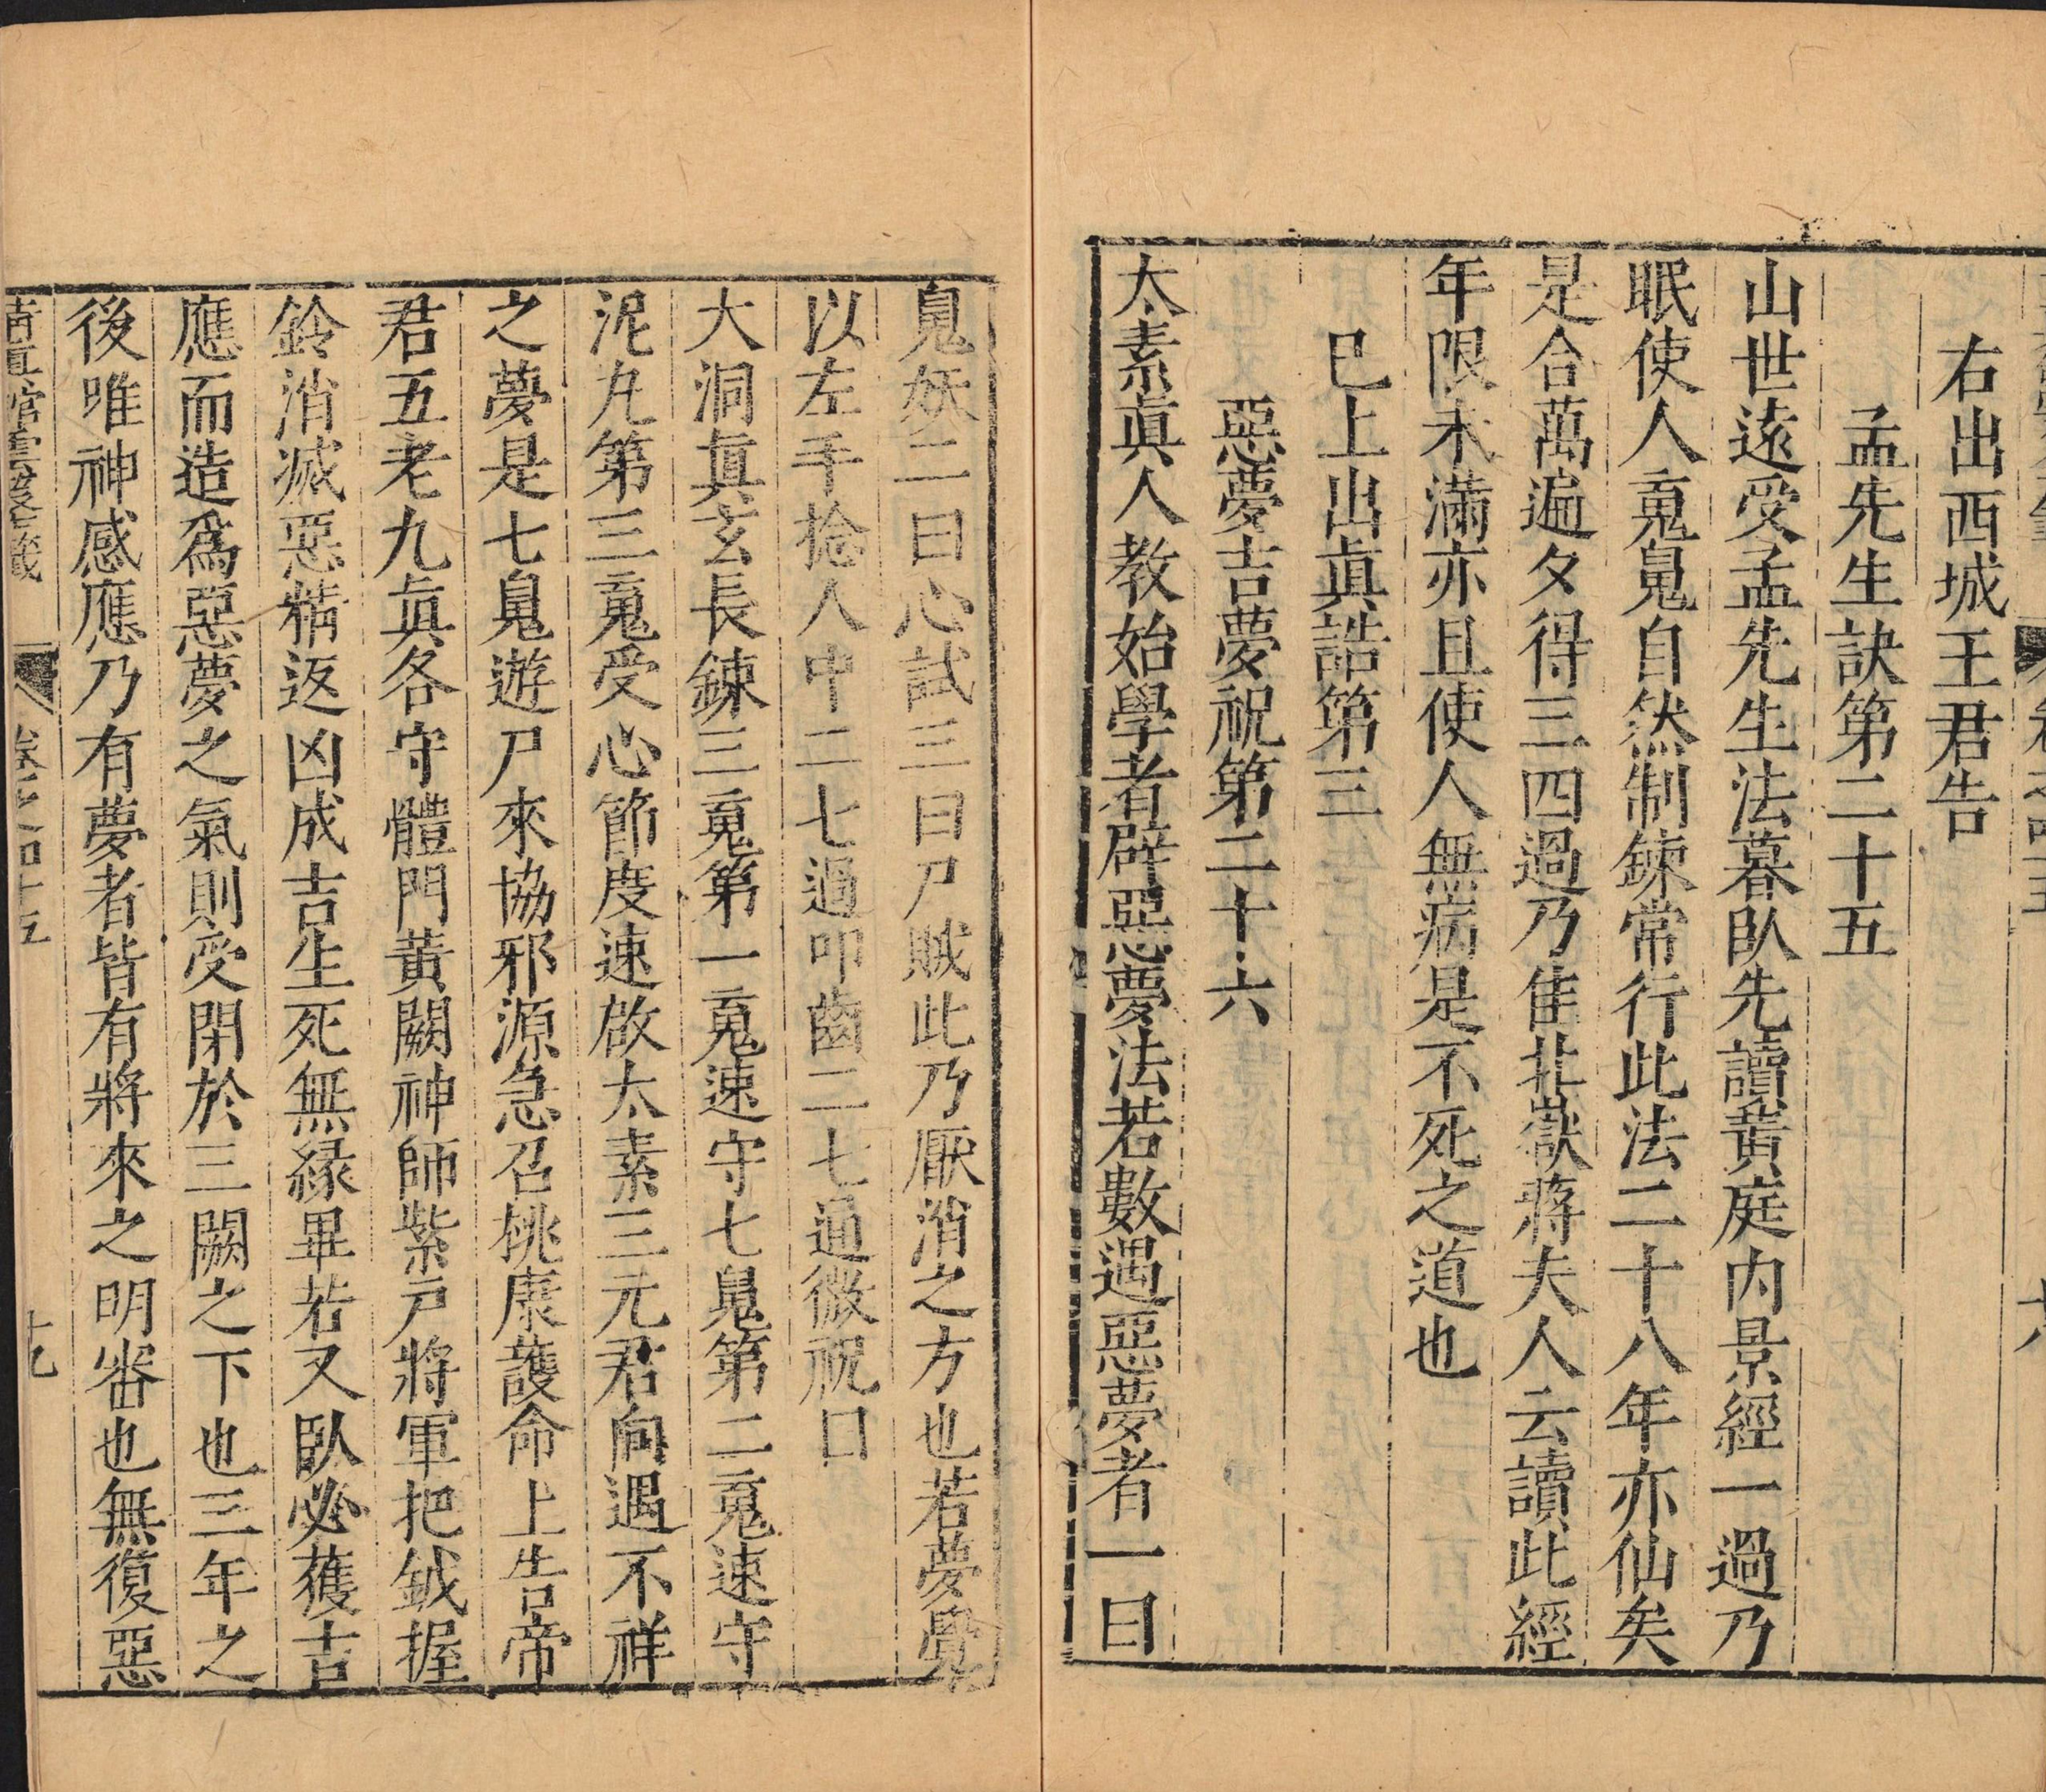 右出西城王君告
孟先生訣第二十五
山世遠受孟先生法暮臥先讀黄庭内景經一過乃
眠使人䰟䰠自然制鍊常行此法二十八年亦仙矣
是合萬遍夕得三四過乃佳北嶽蔣夫人云讀此經
年限未滿亦且使人無病是不死之道也
巳上出眞誥第三
惡夢吉夢祝第二十六
太素眞人教始學者辟惡夢法若數遇惡夢者一曰
䰠妖二曰心試三曰尸賊此乃厭消之方也若夢覺
以左手捻人中二七過叩齒二七通微祝曰
大洞眞玄長鍊三䰟第一䰟速守七䰠第二䰟速守
泥丸第三䰟受心節度速啟太素三元君向遇不祥
之夢是七䰠遊尸來協邪源急召桃康護命上告帝
君五老九眞各守體門黄闕神師紫戸將軍把鉞握
鈴消滅惡精返凶成吉生死無緣畢若又臥必獲吉
應而造爲惡夢之氣則受閉於三闕之下也三年之
後唯神感應乃有夢者皆有將來之明審也無復惡
卷之四十五
十九